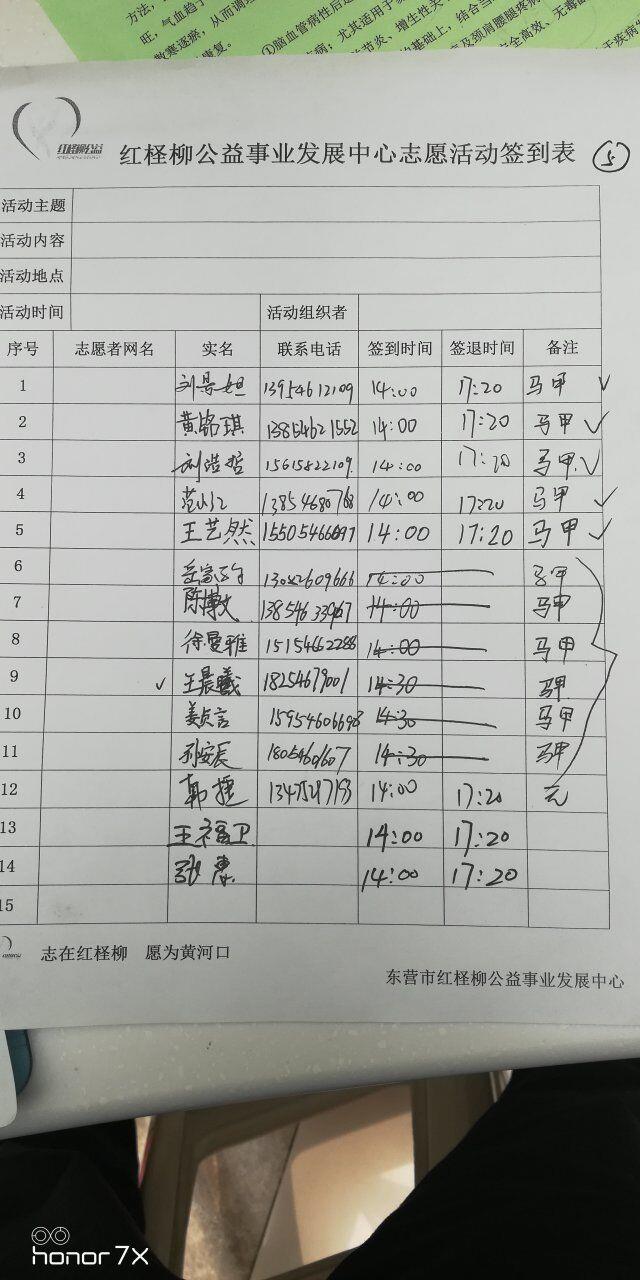 方法，
旺，气血趋于
散寒逐瘀，从而调理
①脑血管病性后遗
红柽柳公益
红柽柳公益事业发展中心志愿活动签到表 5
活动主题
活动内容
活动地点
活动时间 活动组织者
序号 志愿者网名 实名 联系电话 签到时间 签退时间 备注
1 13954612109 14:00 17:20 马甲 ✓
2 黄铭琪 13854621552 14:00 17:20 马甲 ✓
3 刘浩哲 15615822109 14:00 17:20 马甲 ✓
4 13854680768 14:00 17:20 马甲 ✓
5 王艺然 15505466097 14:00 17:20 马甲 ✓
6 13082609666 14:00 马甲
7 陈博文 13854633967 14:00 马甲
8 徐曼雅 15154662288 14:00 马甲
9 ✓ 王晨曦 18254679001 14:30 马甲
10 姜贞言 15954606698 14:30 马甲
11 孙安辰 18054601607 14:30 马甲
12 郭捷 13475297193 14:00 17:20 无
13 王福卫 14:00 17:20
14 张惠 14:00 17:20
15
志在红柽柳 愿为黄河口
东营市红柽柳公益事业发展中心
honor 7X